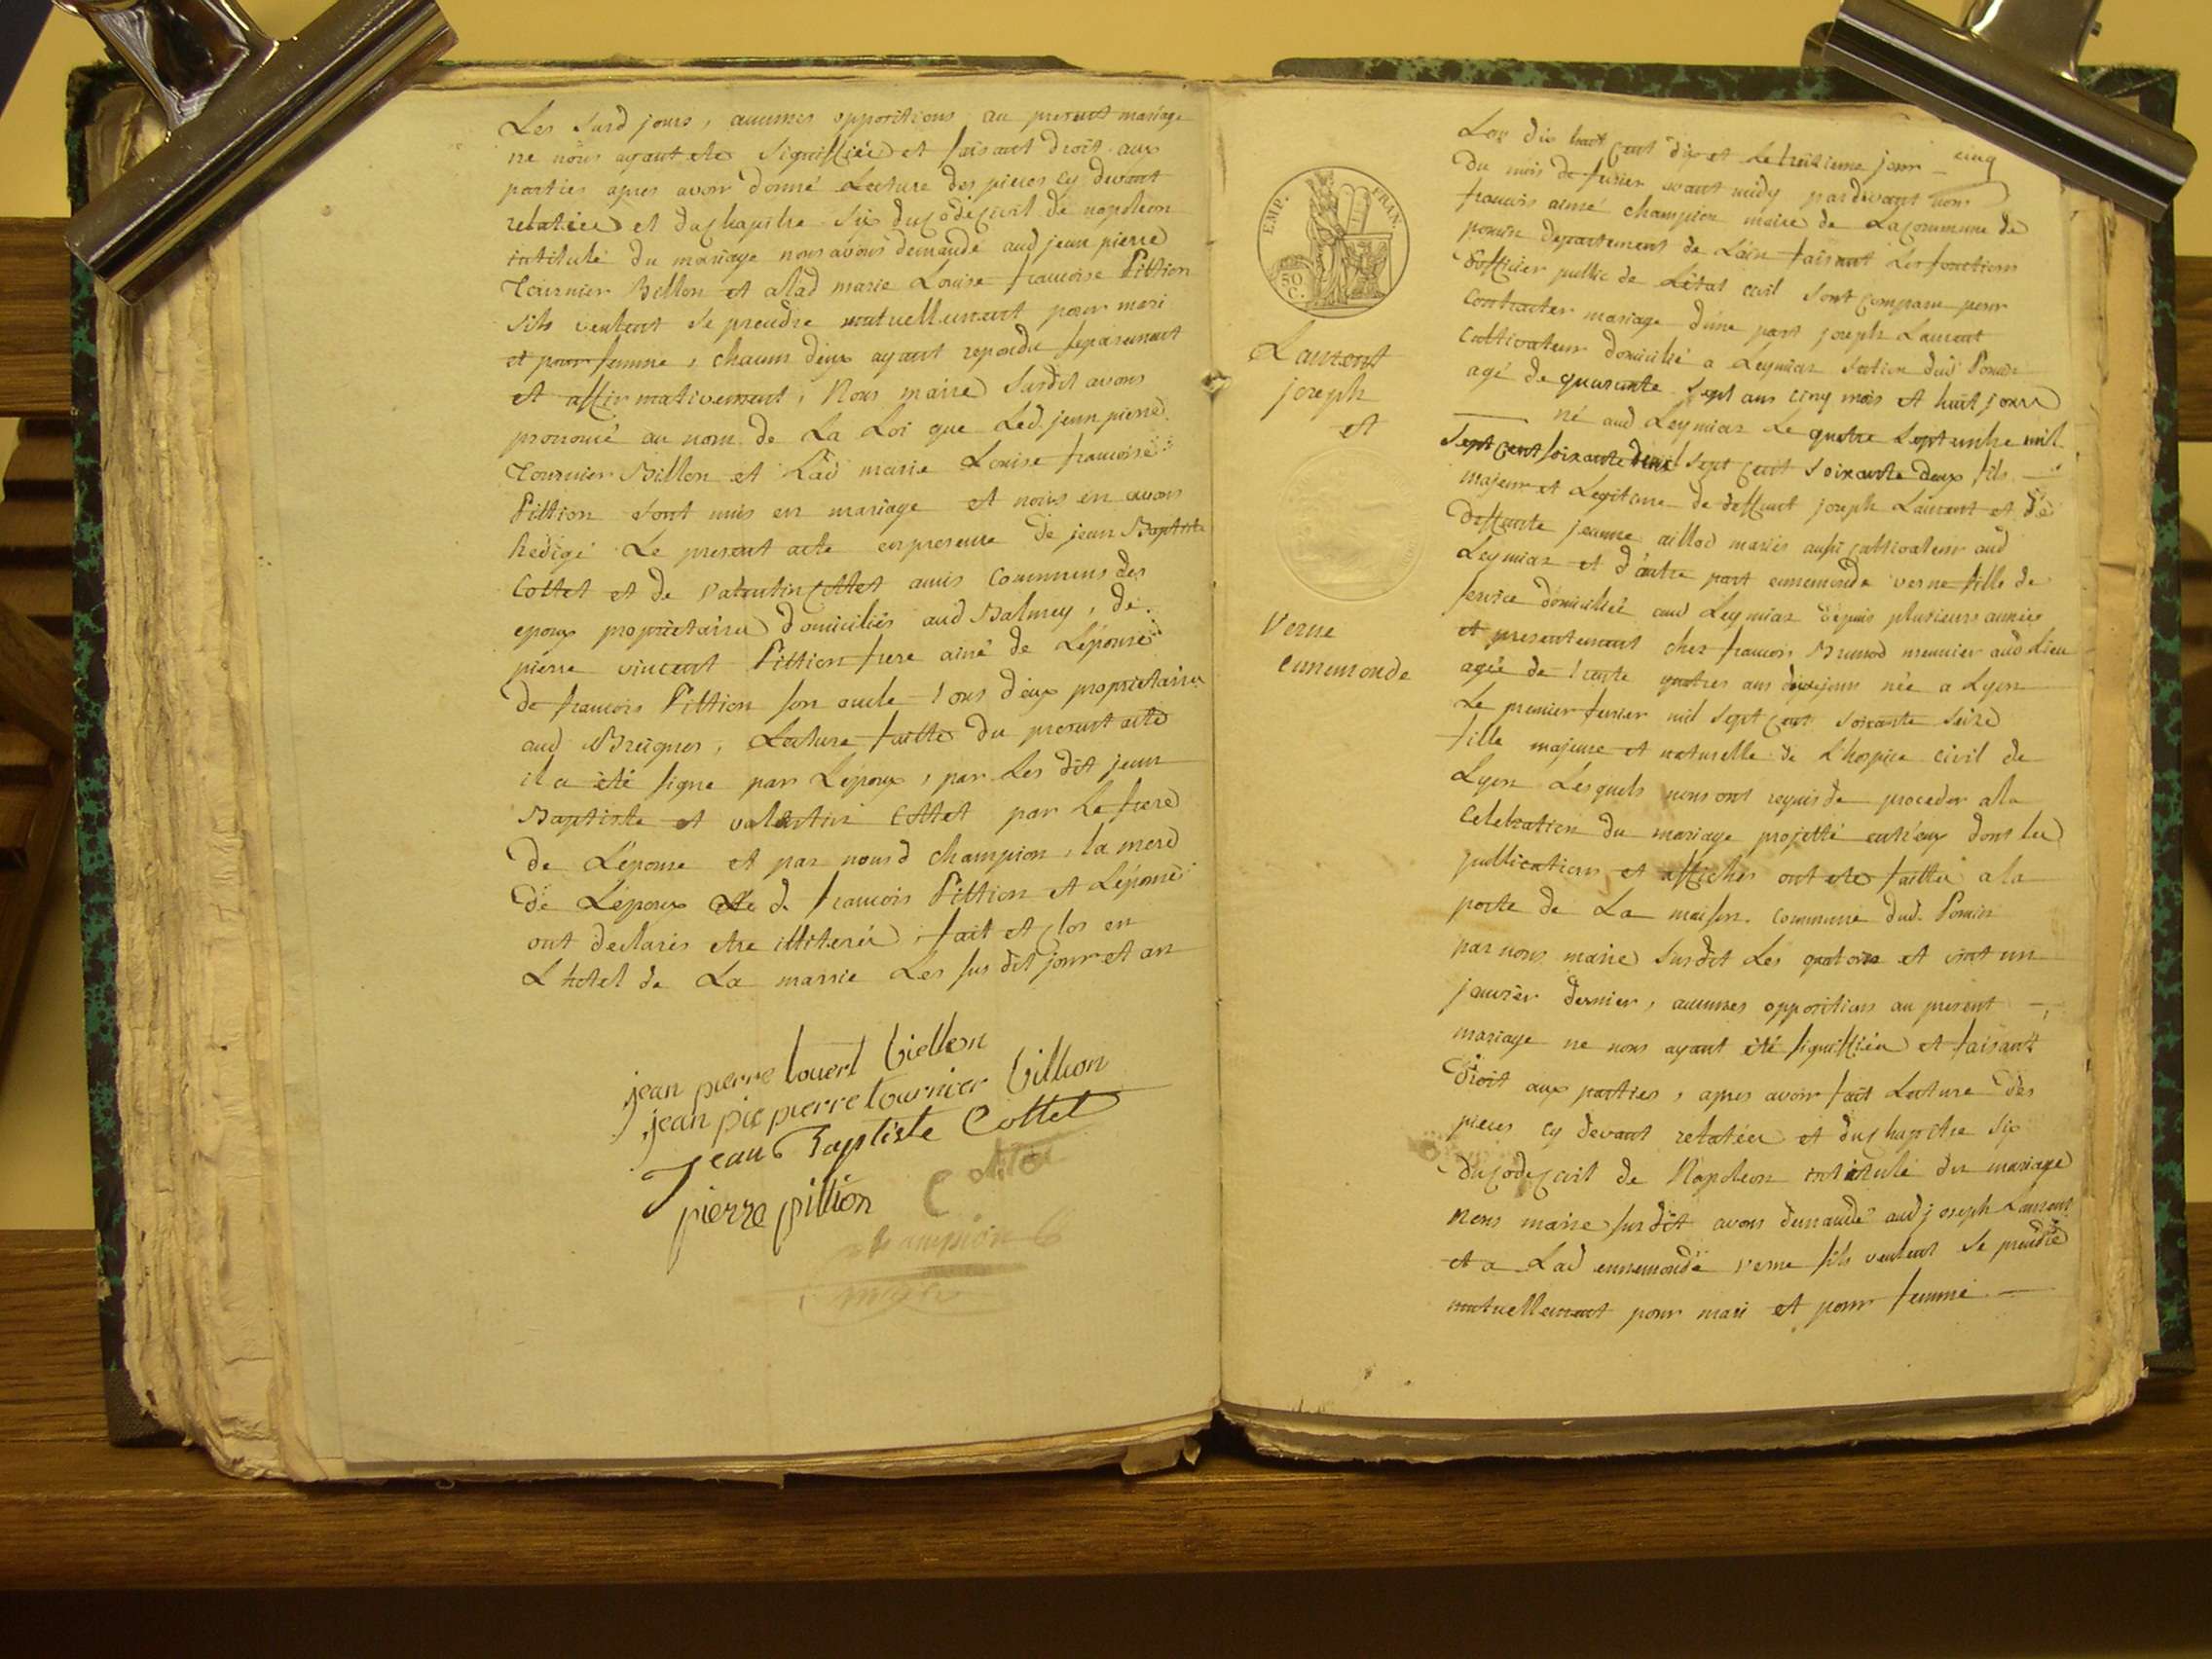 Les susd jours, aucunes oppositions au present mariage
ne nous ayant ete signiffiées et faisant droit aux
parties apres avoir donné Lecture des pieces cy devant
relatées et du chapitre Six du Code Civil de napoleon
intitulé du mariage nous avons demandé aud jean pierre
Tournier Billon et alad marie Louise francoise Pittion
sils veulent se prendre mutuellement pour mari
et pour femme, chacun deux ayant repondu separement
et affirmativement, Nous maire Susdit avons
prononcé au nom de La Loi que Led. jean pierre
Tournier Billon et Lad marie Louise francoise
Pittion sont unis en mariage et nous en avons
Redigé Le present acte en presence de jean Baptiste
Cottet et de valentin Cottet amis communs des
epoux proprietaires domiciliés aud Balmey, de
pierre vincent Pittion frere ainé de Lépouse
de francois Pittion son oncle tous deux proprietaires
aud Breignes, Lecture faitte du present acte
il a été signé par Lépoux, par Les dit jean
Baptiste et valentin Cottet par Le frere
de Lépouse et par nousd champion, la mere
de Lépoux de francois Pittion et Lépouse
ont declarés etre illiterés, fait et clos en
L hotel de La mairie Les susdit jour et an
jean pierre touerl biellon
jean pie pierre tournier billion
jean Baptiste Cottet
pierre pittion
Cottet
champion
maire
EMP. FRAN.
50 C.
Laurent
joseph
et
Verne
ennemonde
Lan dix huit Cent dix et Le treizieme jour cinq
du mois de fevrier avant midy pardevant nous
francois aimé champion maire de La Commune de
poncin departement de Lain faisant Les fonctions
dofficier public de Létat civil sont comparu pour
Contracter mariage d'une part joseph Laurent
Cultivateur domicilié a Leymiaz section dud Poncin
agé de quarante sept ans cinq mois et huit jours
né aud Leymiaz Le quatre septembre mil
sept cent soixante deux sept cent soixante deux fils
majeur et Legitime de deffunt joseph Laurent et de
deffunte jeanne aillod mariés aussi cultivateurs aud
Leymiaz et d'autre part ennemonde verne fille de
service domiciliée aud Leymiaz depuis plusieurs années
et presentement chez francois Brunod meunier aud Lieu
agée de trente quatres ans jours née a Lyon
Le premier fevrier mil sept cent soixante seize
fille majeure et naturelle de L'hospice civil de
Lyon Lesquels nous ont requis de proceder a la
Celebration du mariage projetté entr'eux dont les
publications et affiches ont ete faittes a la
porte de La maison commune dud. Poncin
par nous maire susdit Les quatorze et vint un
janvier dernier, aucunes oppositions au present
mariage ne nous ayant été signiffiées et faisant
Droit aux parties, apres avoir fait Lecture des
pieces cy devant relatées et du chapitre Six
du Code Civil de Napoleon intitulé du mariage
Nous maire susdit avons demandé aud joseph Laurent
et a Lad ennemonde verne sils veulent se prendre
mutuellement pour mari et pour femme